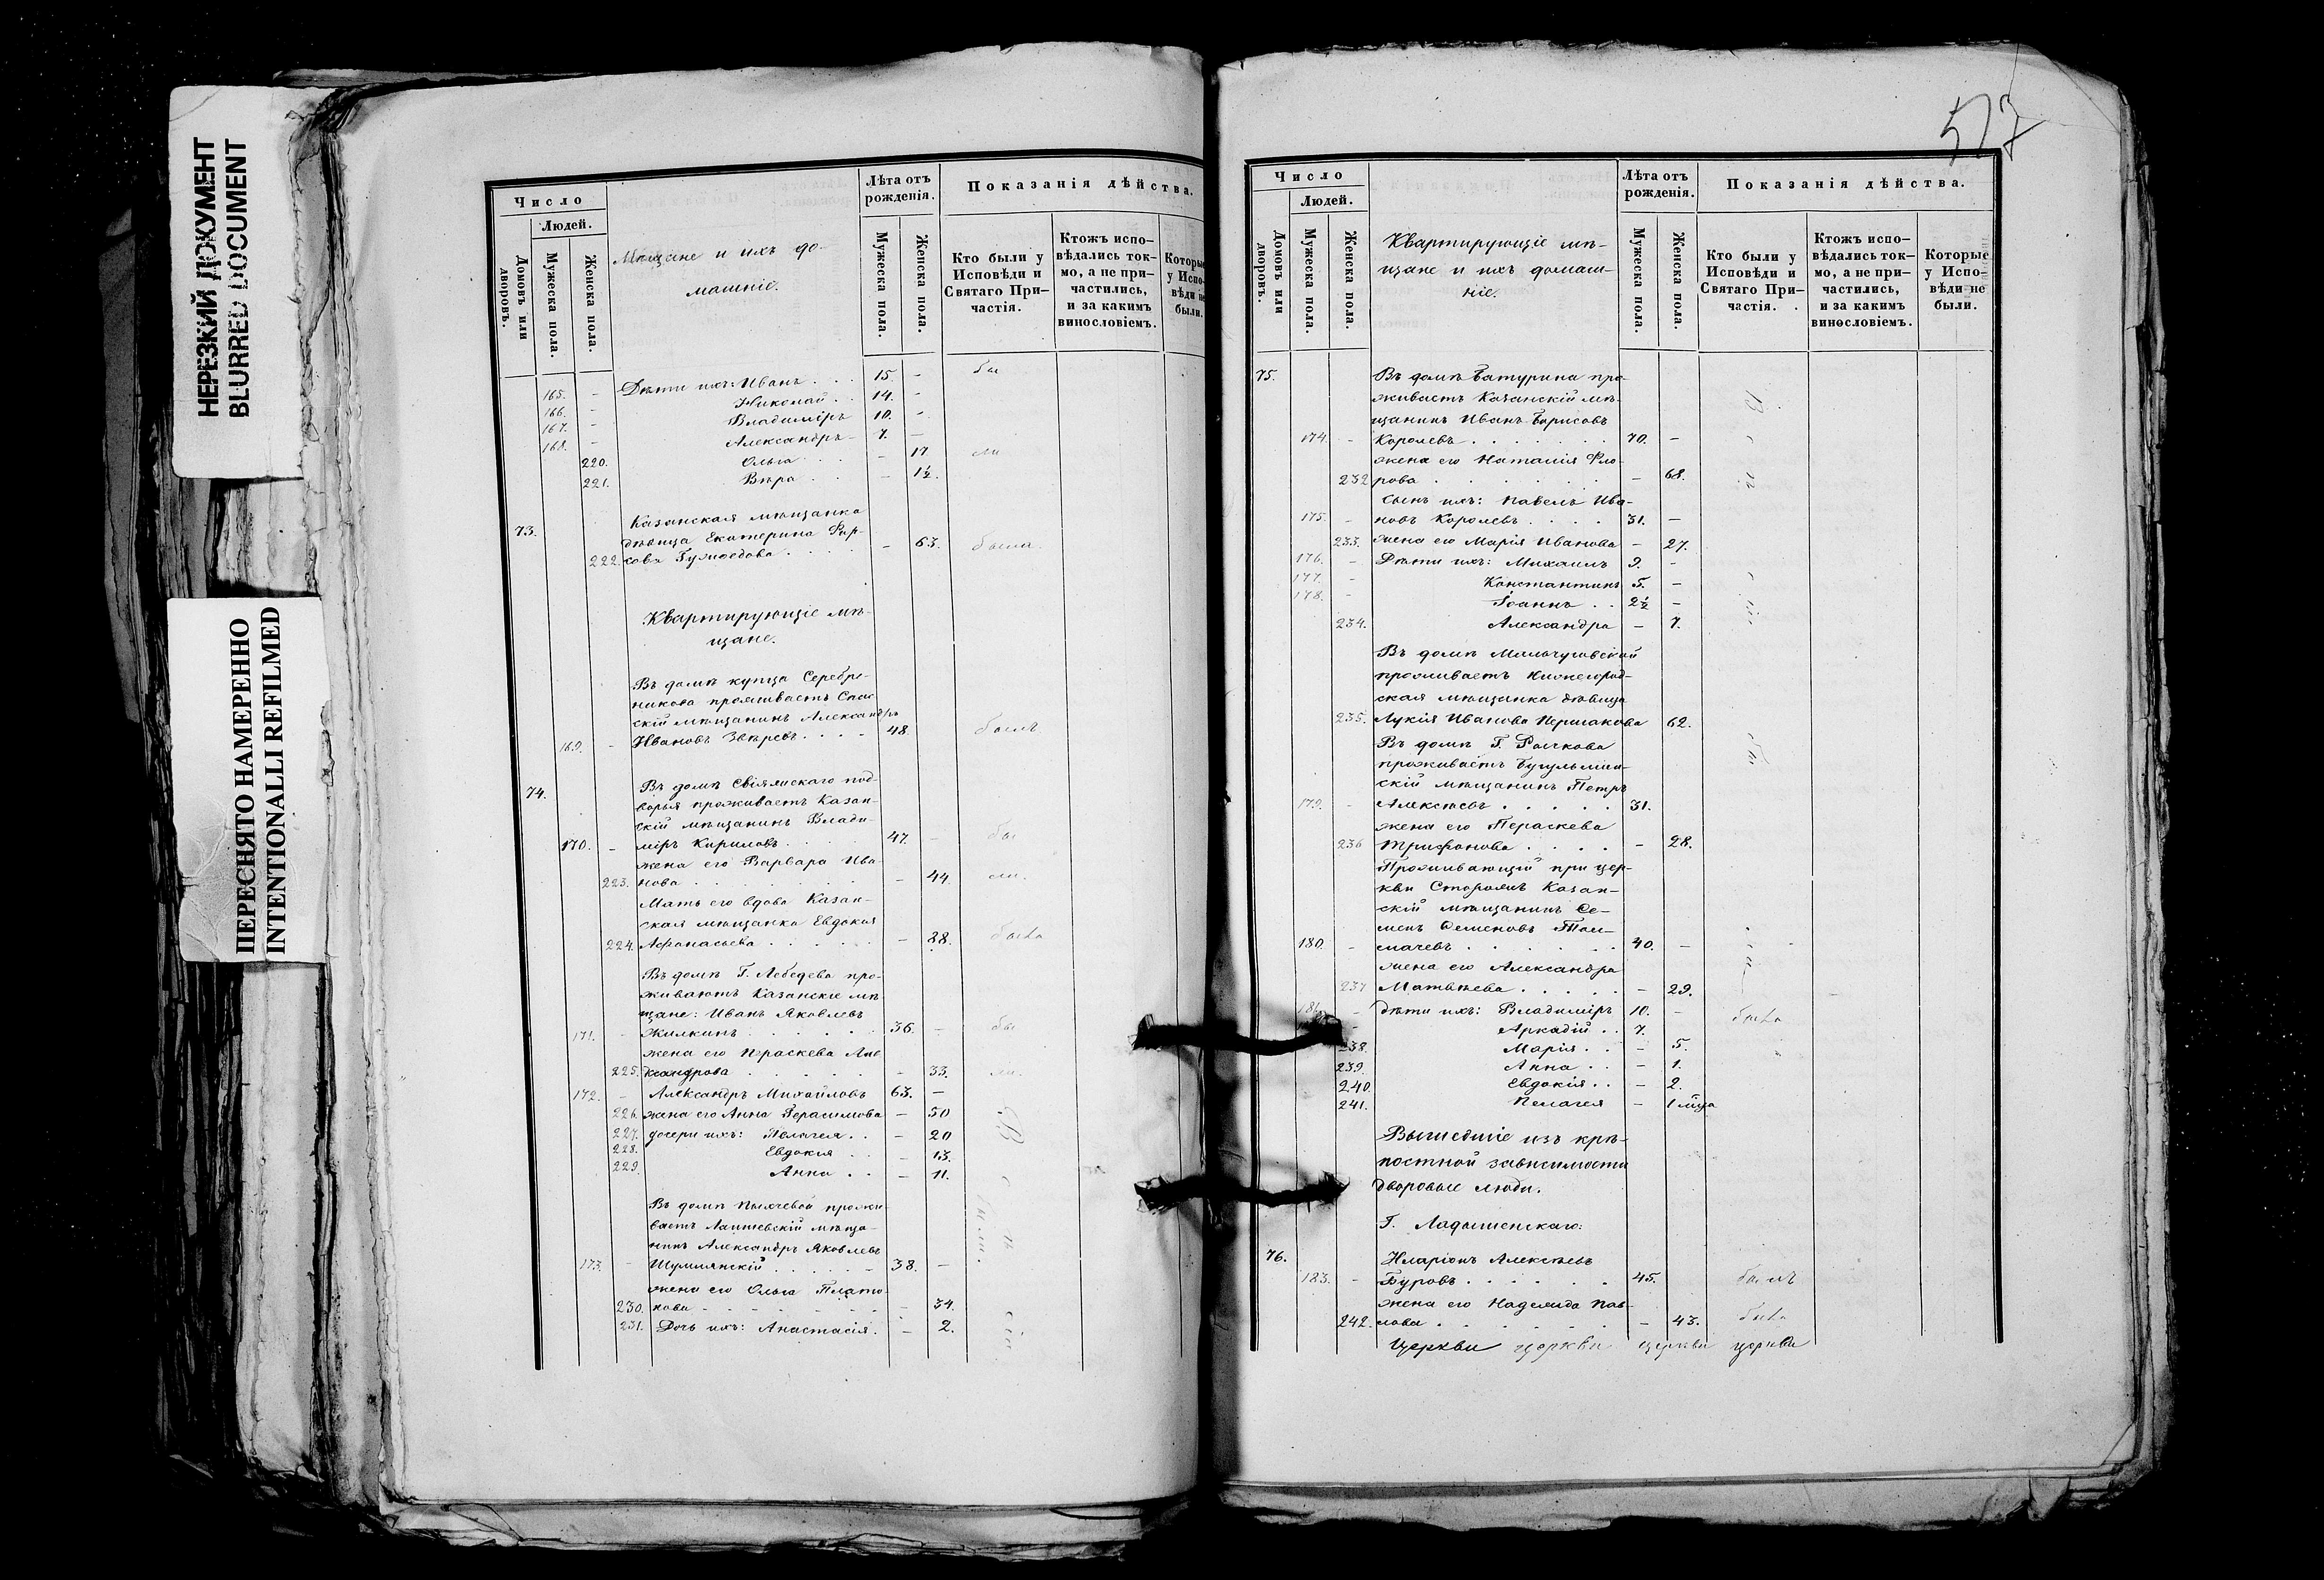 НЕРЕЗКИЙ ДОКУМЕНТ
BLURRED DOCUMENT
ПЕРЕСНЯТО НАМЕРЕННО
INTENTIONALLI REFILMED
Число
Людей.
Домовъ или дворовъ.
Мужеска пола.
Женска пола.
Мѣщане и ихъ до-
машніе.
Лѣта отъ рожденія.
Мужеска пола.
Женска пола.
Показанія дѣйства.
Кто были у Исповѣди и Святаго При-частія.
Ктожъ испо-вѣдались ток-мо, а не при-частились, и за какимъ винословіемъ.
Которые у Испо-вѣди не были.
165. - Дѣти ихъ: Иванъ . . . 15. - бы
166. - Николай . . 14. -
167. - Владиміръ 10. -
168. - Александръ 7. -
220. Ольга . . . - 17 ли
221. Вѣра . . . - 1½.
73. Казанская мѣщанка
дѣвица Екатерина Фир-
222. сова . . . . - 63. была
Квартирующіе мѣ-
щане.
Въ домѣ купца Серебре-
никова проживаетъ Спас
скій мѣщанинъ Александръ
169. - Ивановъ Звѣревъ . . . . 48. былъ
74. Въ домѣ Свіяжскаго под-
ворья проживаетъ Казан-
скій мѣщанинъ Влади-
170. - міръ Кириловъ . . . . 47. - бы
жена его Варвара Ива-
223. нова . . . . . . - 44. ли.
Мать его вдова Казан-
ская мѣщанка Евдокия
224. Афонасьева . . . . . - 88. была
Въ домѣ Г. Лебедева про-
живаютъ Казанскіе мѣ
щане: Иванъ Яковлевъ
171. - Жилкинъ . . . . . . 36. - бы
жена его Праскева Але
225. ксандрова . . . . . - 33. ли.
172. - Александръ Михайловъ 63. -
226. жена его Анна Герасимова - 50
227. дочери ихъ: Пелагея . . - 20
228. Евдокия . . - 13.
229. Анна . . - 11.
Въ домѣ прожи
ваетъ Лаишевскій мѣща-
нинъ Александръ Яковлевъ
173. - Шумлянскій . . . . . 38. -
жена его Ольга Плато
230. нова - - - - - - - 34.
231. Дочь ихъ: Анастасія. - 2.
Число
Людей.
Домовъ или дворовъ.
Мужеска пола.
Женска пола.
Квартирующіе мѣ-
щане и ихъ домаш-
ніе.
Лѣта отъ рожденія.
Мужеска пола.
Женска пола.
Показанія дѣйства.
Кто были у Исповѣди и Святаго При-частія.
Ктожъ испо-вѣдались ток-мо, а не при-частились, и за какимъ винословіемъ.
Которые у Испо-вѣди не были.
75. Въ домѣ Батурина про-
живаетъ Казанскій мѣ-
щанинъ Иванъ Борисовъ
174. - Королевъ . . . . . . 70. -
жена его Наталія Фло-
232 рова . . . . . . - 68.
Сынъ ихъ: Павелъ Ива-
175. - новъ Королевъ . . . . 31. -
233. жена его Марія Иванова - 27.
176. - Дѣти ихъ: Михаилъ 9. -
177. - Константинъ 5. -
178. - Іоаннъ . . 2½ -
234. Александра - 7.
Въ домѣ
проживаетъ Нижегород-
ская мѣщанка дѣвица
235. Лукія Иванова 62.
Въ домѣ Г. Рычкова
проживаетъ Бугульмин-
скій мѣщанинъ Петръ
179. - Алексѣевъ . . . . . 31.
жена его Параскева
236 Трифонова . . . . - 28.
Проживающій при цер-
кви Сторожъ Казан-
скій мѣщанинъ Се-
менъ Семеновъ Тол-
180. - мачевъ . . . . . . 40. -
жена его Александра
237 Матвѣева . . . . . - 29.
181. - дѣти ихъ: Владиміръ 10. - была
Аркадій . . 7.
238. Марія . . - 5.
239. Анна . . - 1.
240. Евдокія . . - 2.
241. Пелагея - 1 мца
Вышедшіе изъ крѣ-
постной зависимости
дворовые люди.
Г. Ладыженскаго:
76. Иларіонъ Алексѣевъ
183. - Буровъ . . . . . . 45. былъ
жена его Надежда Пав-
242. лова . . . . . . - 43. была
Церкви церкви церкви церкви